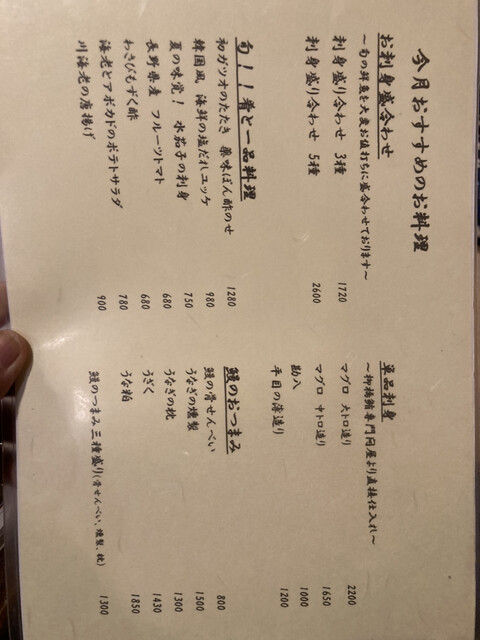 今月おすすめのお料理
お刺身盛合わせ
～旬の鮮魚を大変お値打ちに盛合わせております～
刺身盛り合わせ 3種 1720
刺身盛り合わせ 5種 2600
旬！！肴と一品料理
初ガツオのたたき 薬味ぽん酢のせ 1280
韓国風 海鮮の塩だれユッケ 980
夏の味覚！ 水茄子の刺身 750
長野県産 フルーツトマト 680
わさびもずく酢 680
海老とアボカドのポテトサラダ 780
川海老の唐揚げ 900
単品刺身
～柳橋鮪専門問屋より直接仕入れ～
マグロ 大トロ造り 2200
マグロ 中トロ造り 1650
勘八 1000
平目の薄造り 1200
鰻のおつまみ
鰻の骨せんべい 800
うなぎの燻製 1500
うなぎの枕 1300
うざく 1430
うな粕 1850
鰻のつまみ三種盛り（骨せんべい、燻製、枕） 1300